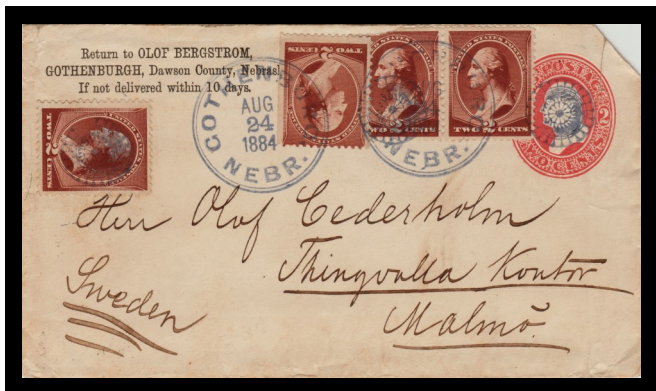 Return to OLOF BERGSTROM,
GOTHENBURGH, Dawson County, Nebras.
If not delivered within 10 days.
GOTHENB
AUG
24
1884
NEBR.
NEBR.
TWO 2 CENTS
TWO 2 CENTS
TWO 2 CENTS
TWO 2 CENTS
TWO CENTS
Herr Olof Cederholm
Thingvalla Kontor
Malmö.
Sweden